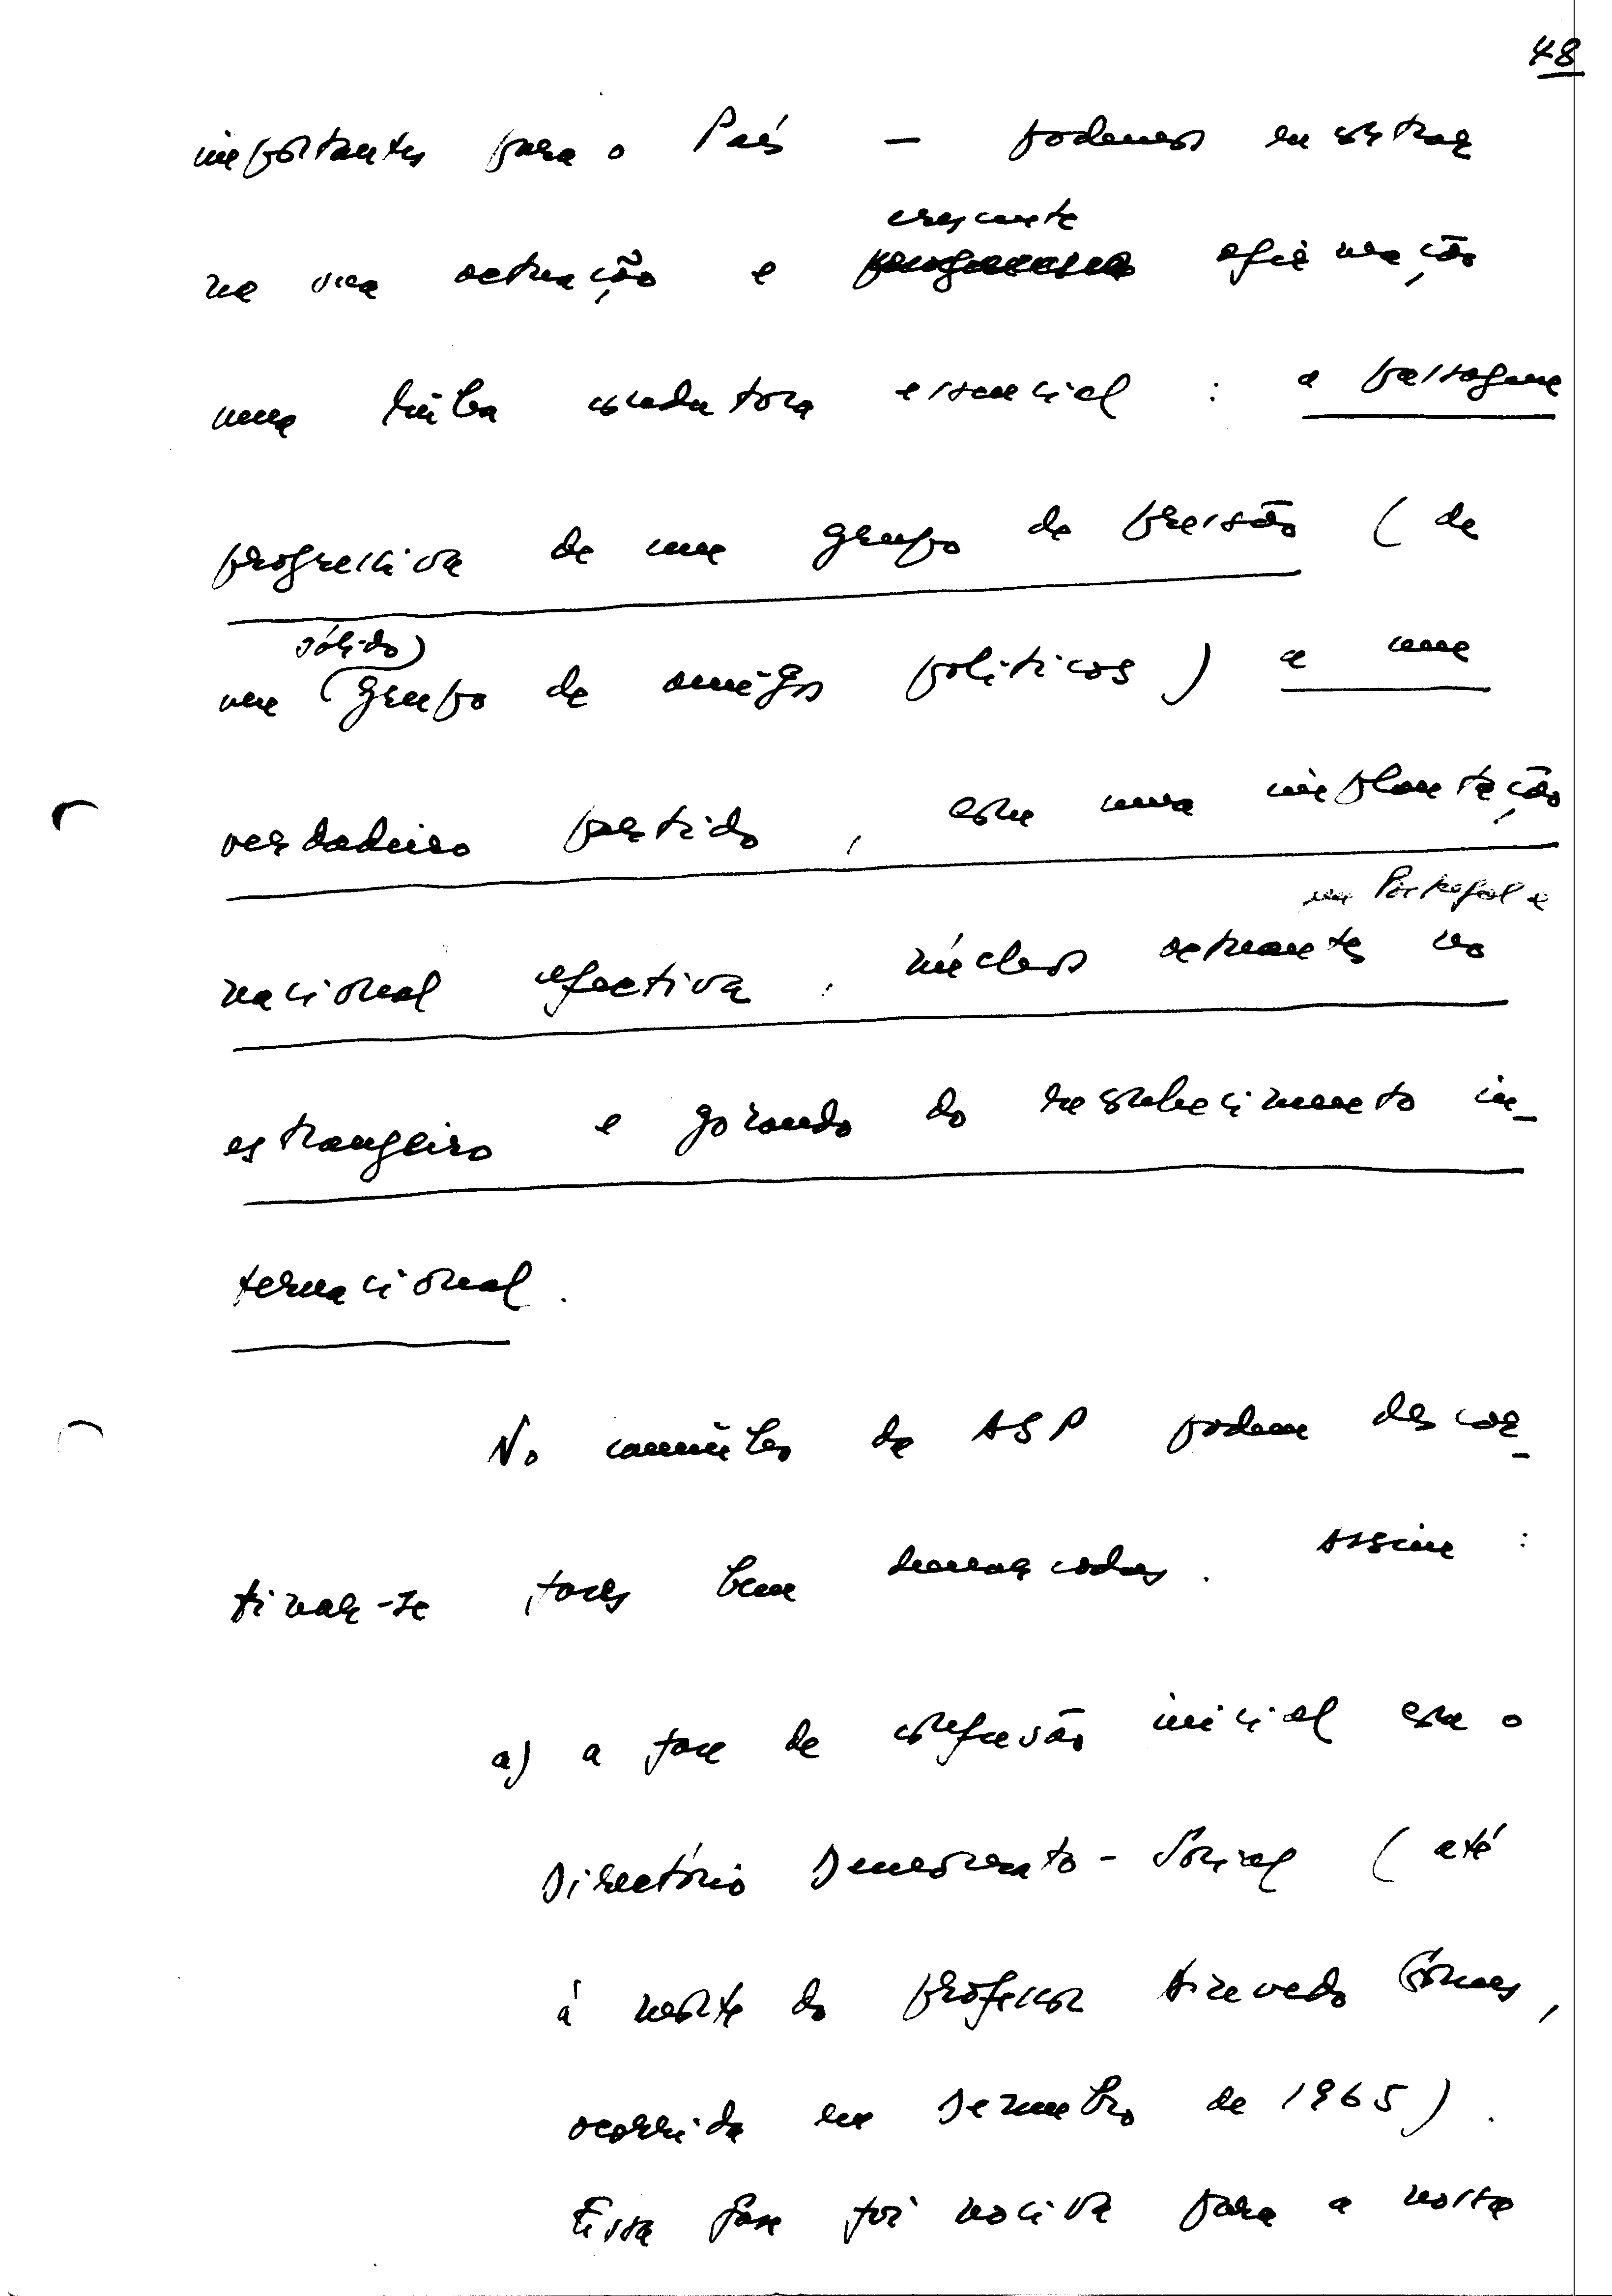 48
importantes para o País — podemos encontrar
crescente
na sua actuação e progressiva afirmação
uma linha condutora essencial : a passagem
progressiva de um grupo de pressão ( de
sólido)
um (grupo de amigos políticos ) a um
verdadeiro partido , com uma implantação
em Portugal e
nacional efectiva , núcleos actuantes no
estrangeiro e gozando do reconhecimento in-
ternacional .
No caminho da ASP podem descor-
tinar-se fases bem demarcadas . Assim :
a) a fase de confusão inicial com o
Directório Democrato-Social ( até
à morte do professor Azevedo Gomes ,
ocorrida em Dezembro de 1965 ) .
Essa fase foi nociva para a nossa